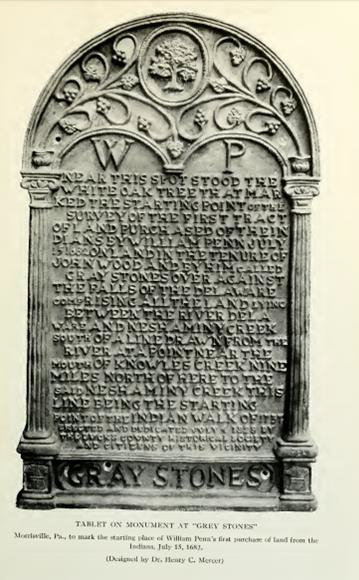 W P
NEAR THIS SPOT STOOD THE
WHITE OAK TREE THAT MAR
KED THE STARTING POINT OF THE
SURVEY OF THE FIRST TRACT
OF LAND PURCHASED OF THE IN
DIANS BY WILLIAM PENN JULY
15 1682 ON LAND IN THE TENURE OF
JOHN WOOD AND BY HIM CALLED
GRAY STONES OVER AGAINST
THE FALLS OF THE DELAWARE
COMPRISING ALL THE LAND LYING
BETWEEN THE RIVER DELA
WARE AND NESHAMINY CREEK
SOUTH OF A LINE DRAWN FROM THE
RIVER AT A POINT NEAR THE
MOUTH OF KNOWLES CREEK NINE
MILES NORTH OF HERE TO THE
SAID NESHAMINY CREEK THIS
LINE BEING THE STARTING
POINT OF THE INDIAN WALK OF
ERECTED AND DEDICATED JULY BY
THE BUCKS COUNTY HISTORICAL SOCIETY
AND CITIZENS OF THIS VICINITY
GRAY STONES
TABLET ON MONUMENT AT "GREY STONES"
Morrisville, Pa., to mark the starting place of William Penn's first purchase of land from the
Indians, July 15, 1682.
(Designed by Dr. Henry C. Mercer)